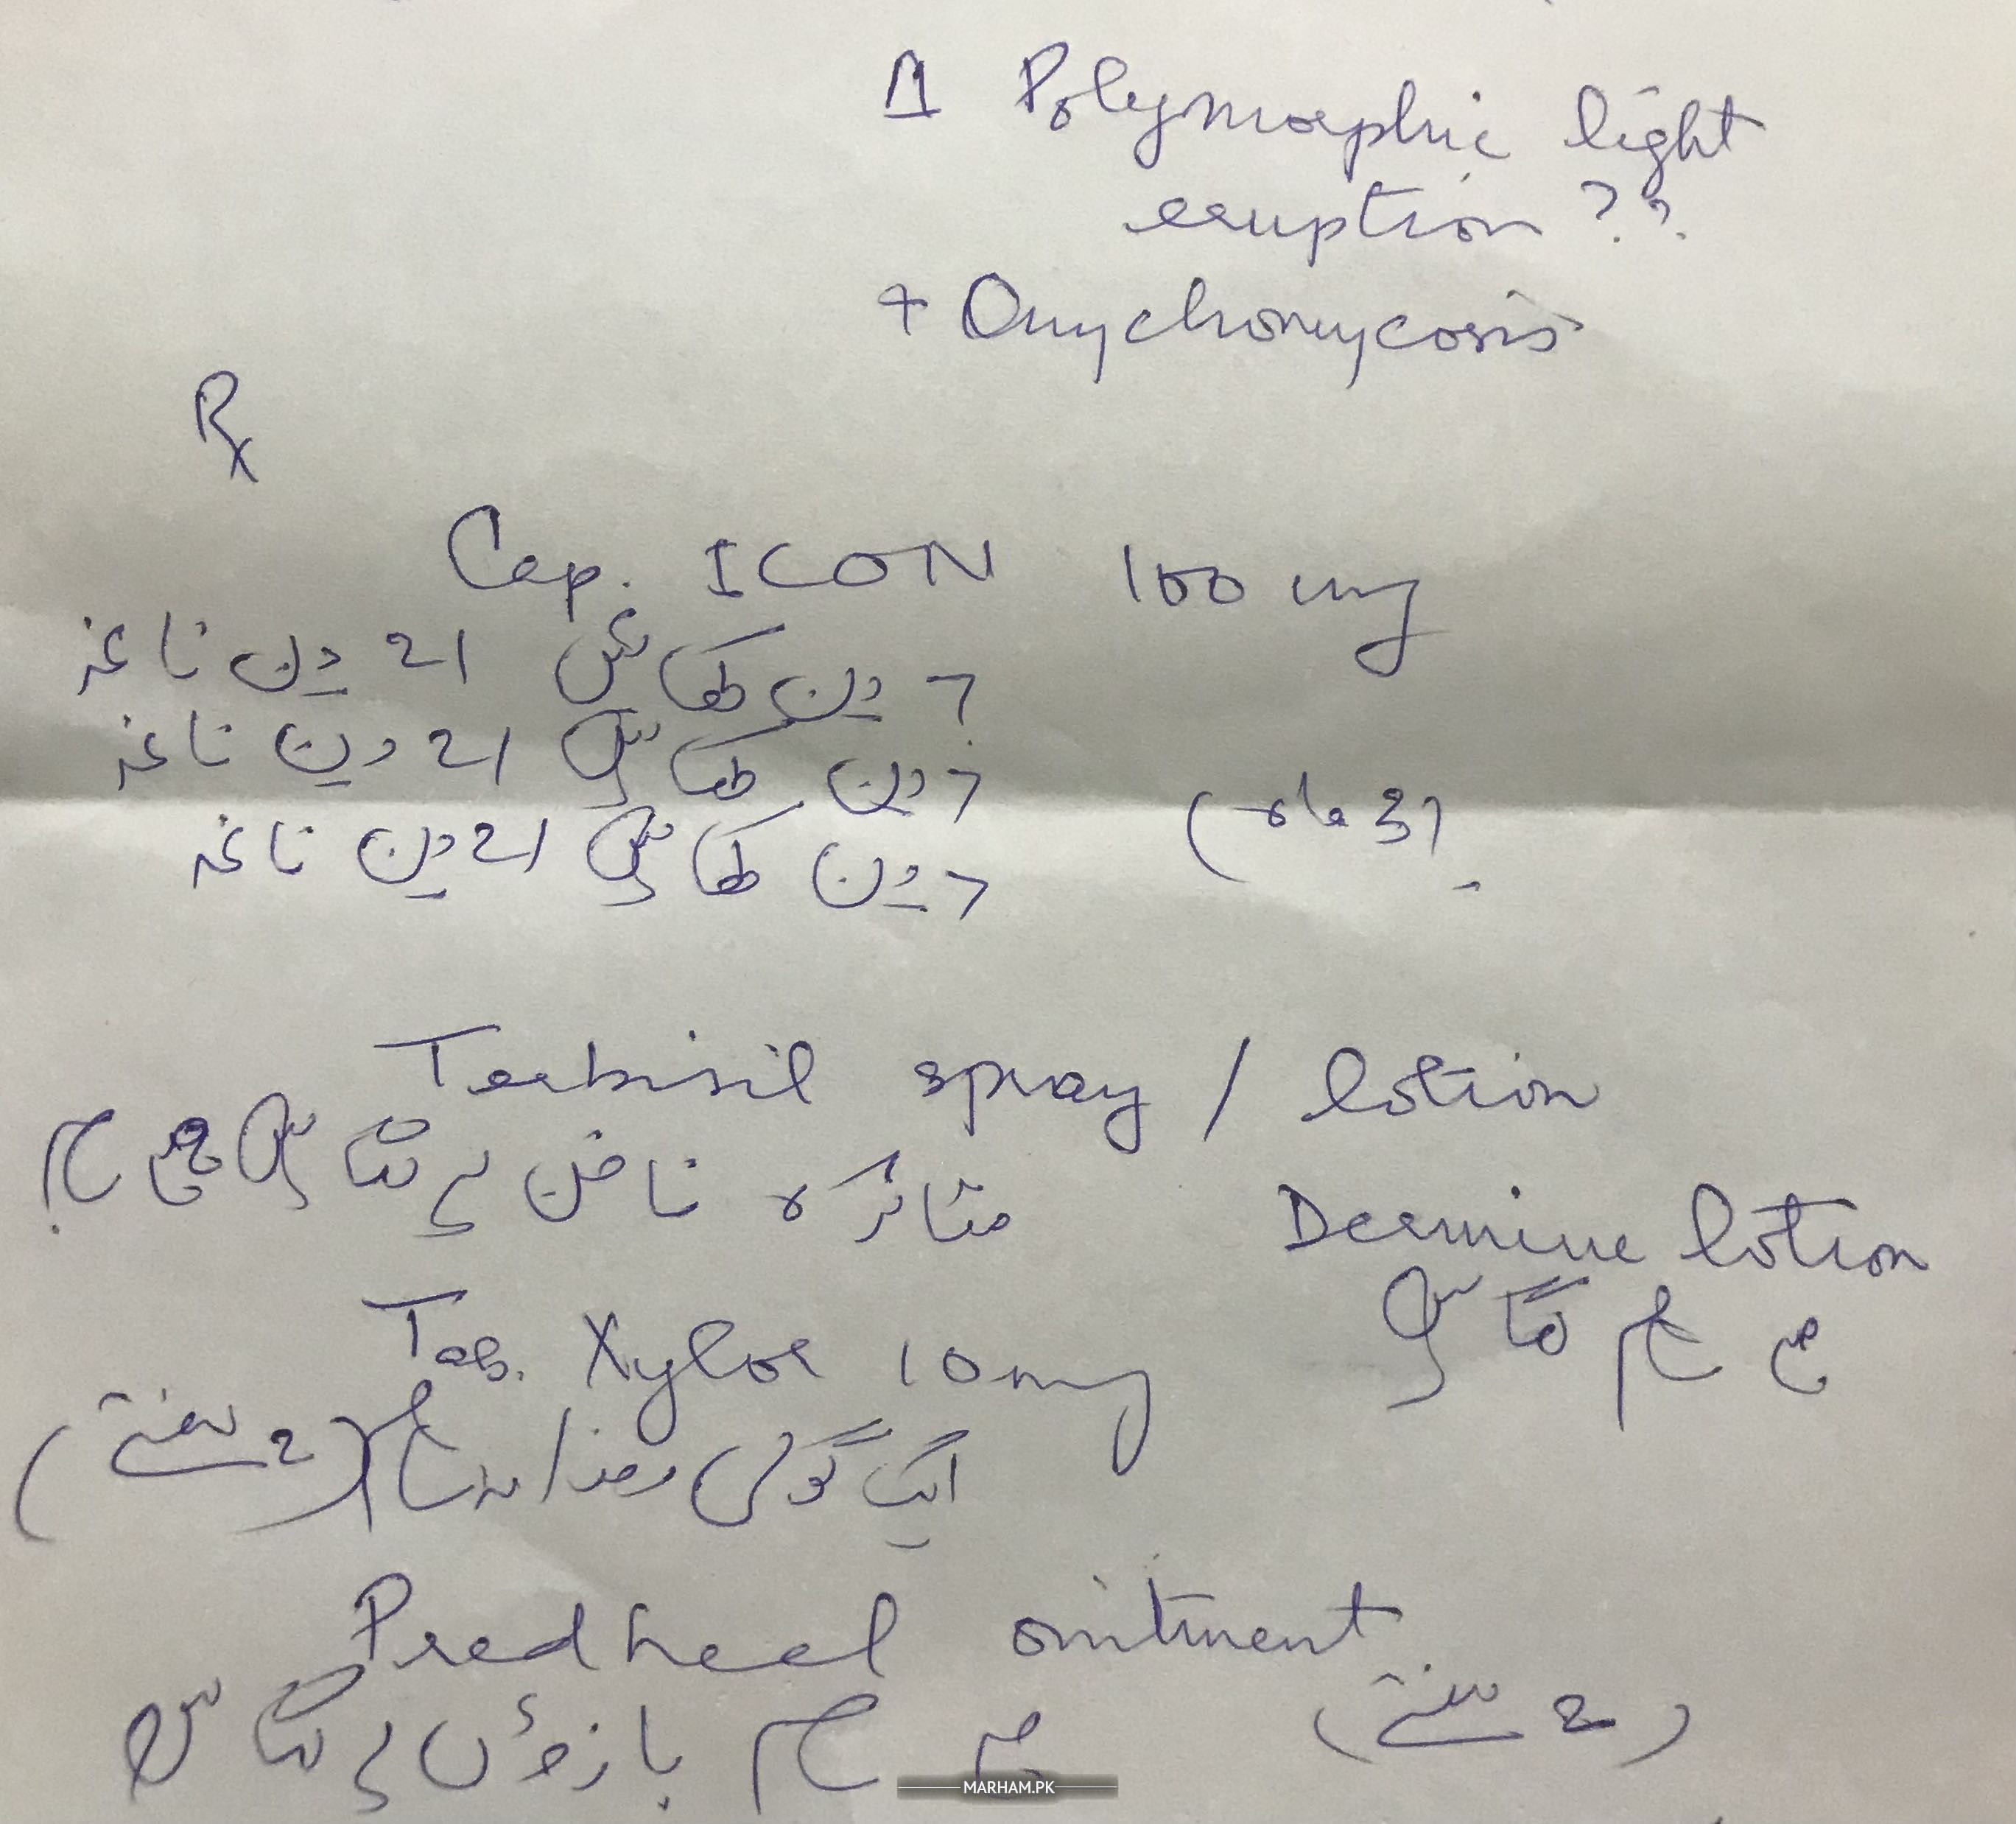 Δ Polymorphic light
eruption ??
+ Onychomycosis
Rx
Cap. ICON 100 mg
7 دن کھائیں 21 دن ناغہ
7 دن کھائیں 21 دن ناغہ
(3 ماہ)
7 دن کھائیں 21 دن ناغہ
Terbisil spray / lotion
متاثرہ ناخن پر لگائیں صبح شام
Dermine lotion
صبح شام لگائیں
Tab. Xylor 10 mg
ایک گولی روزانہ شام (2 ہفتے)
Predheel ointment
(2 ہفتے)
صبح شام بازوؤں پر لگائیں
MARHAM.PK